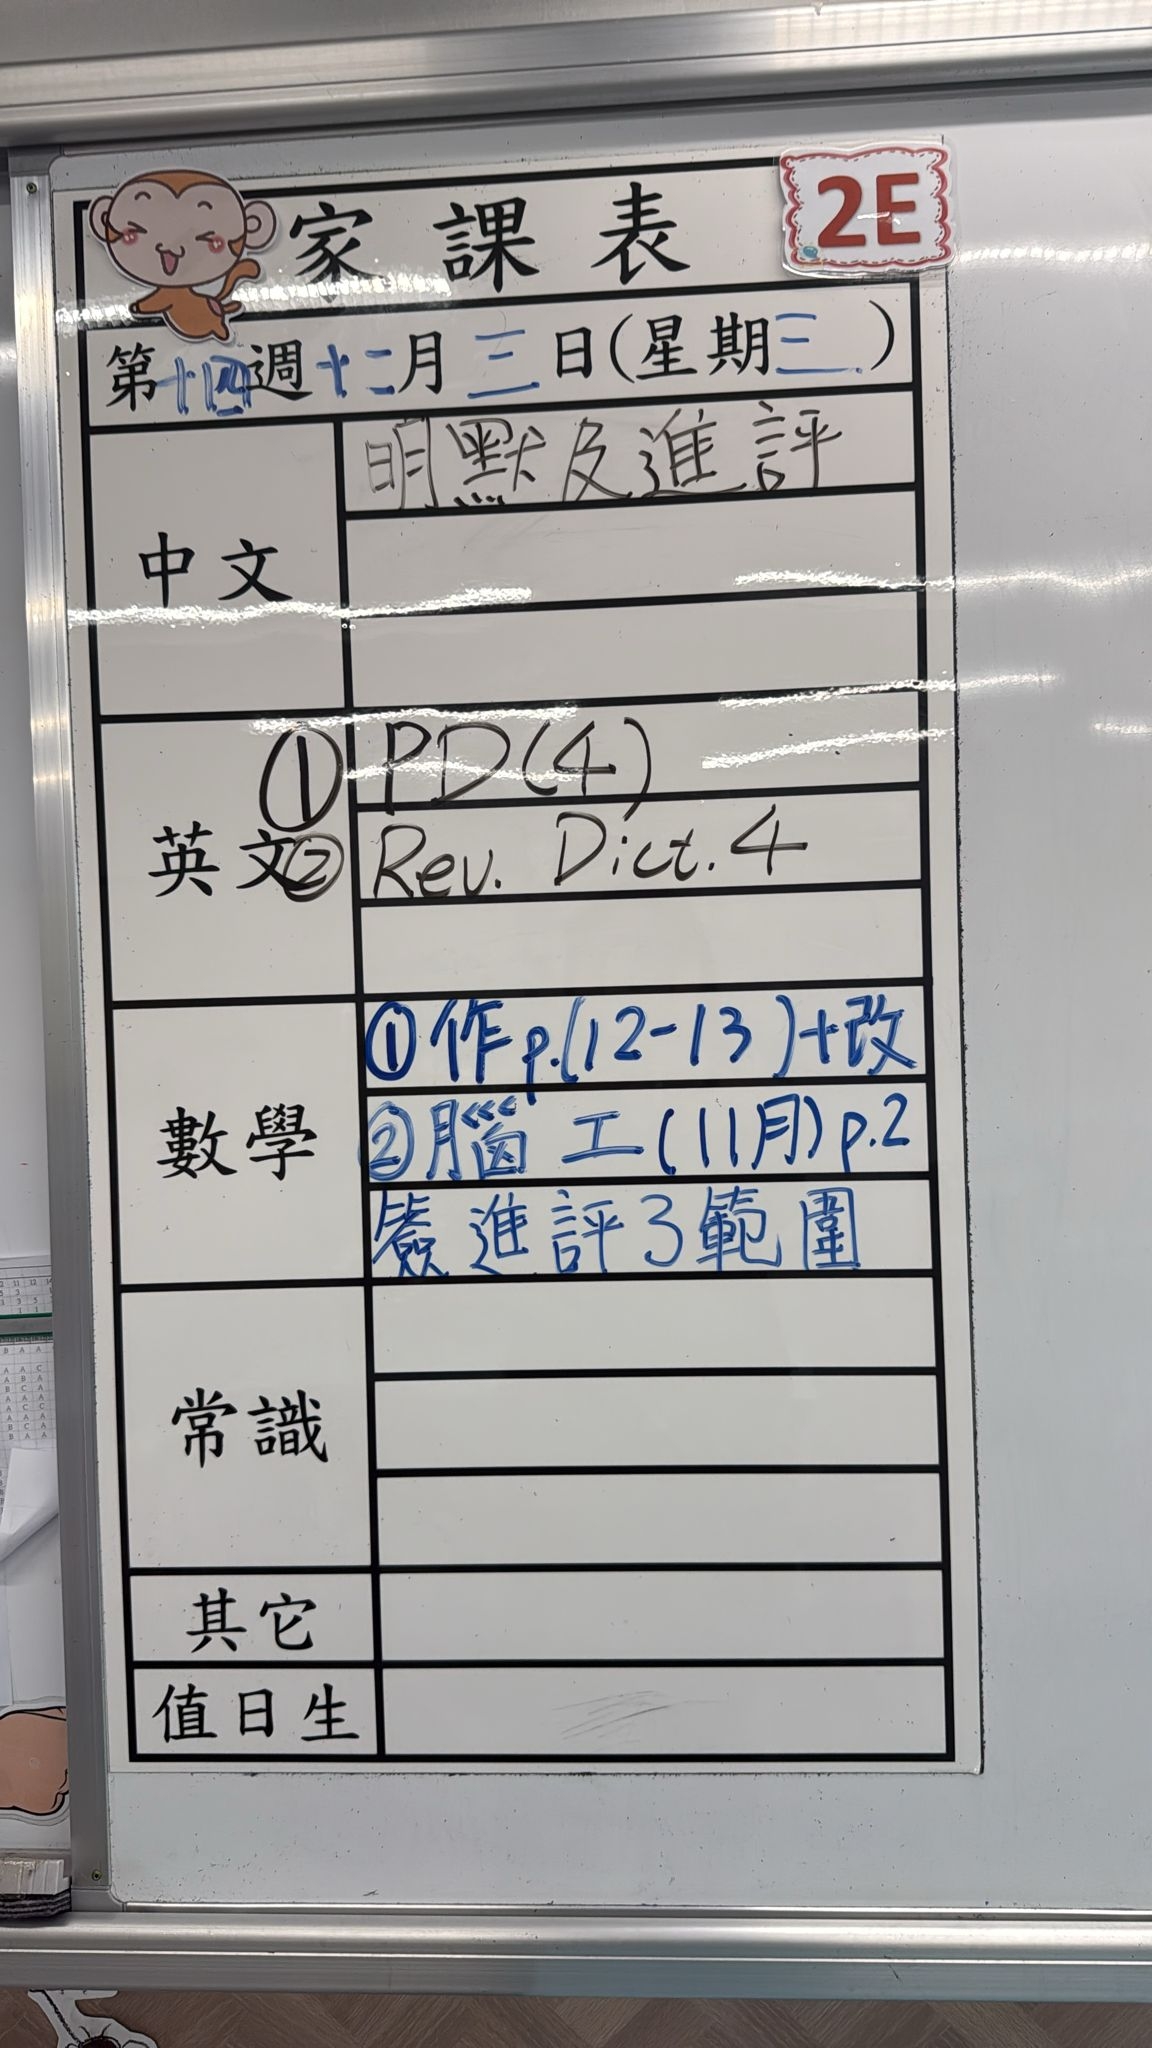 家課表
2E
第十四週十二月三日(星期三)
中文
明默及進評
英文
① PD(4)
② Rev. Dict. 4
數學
①作p.(12-13)+改
②腦工(11月)p.2
簽進評3範圍
常識
其它
值日生